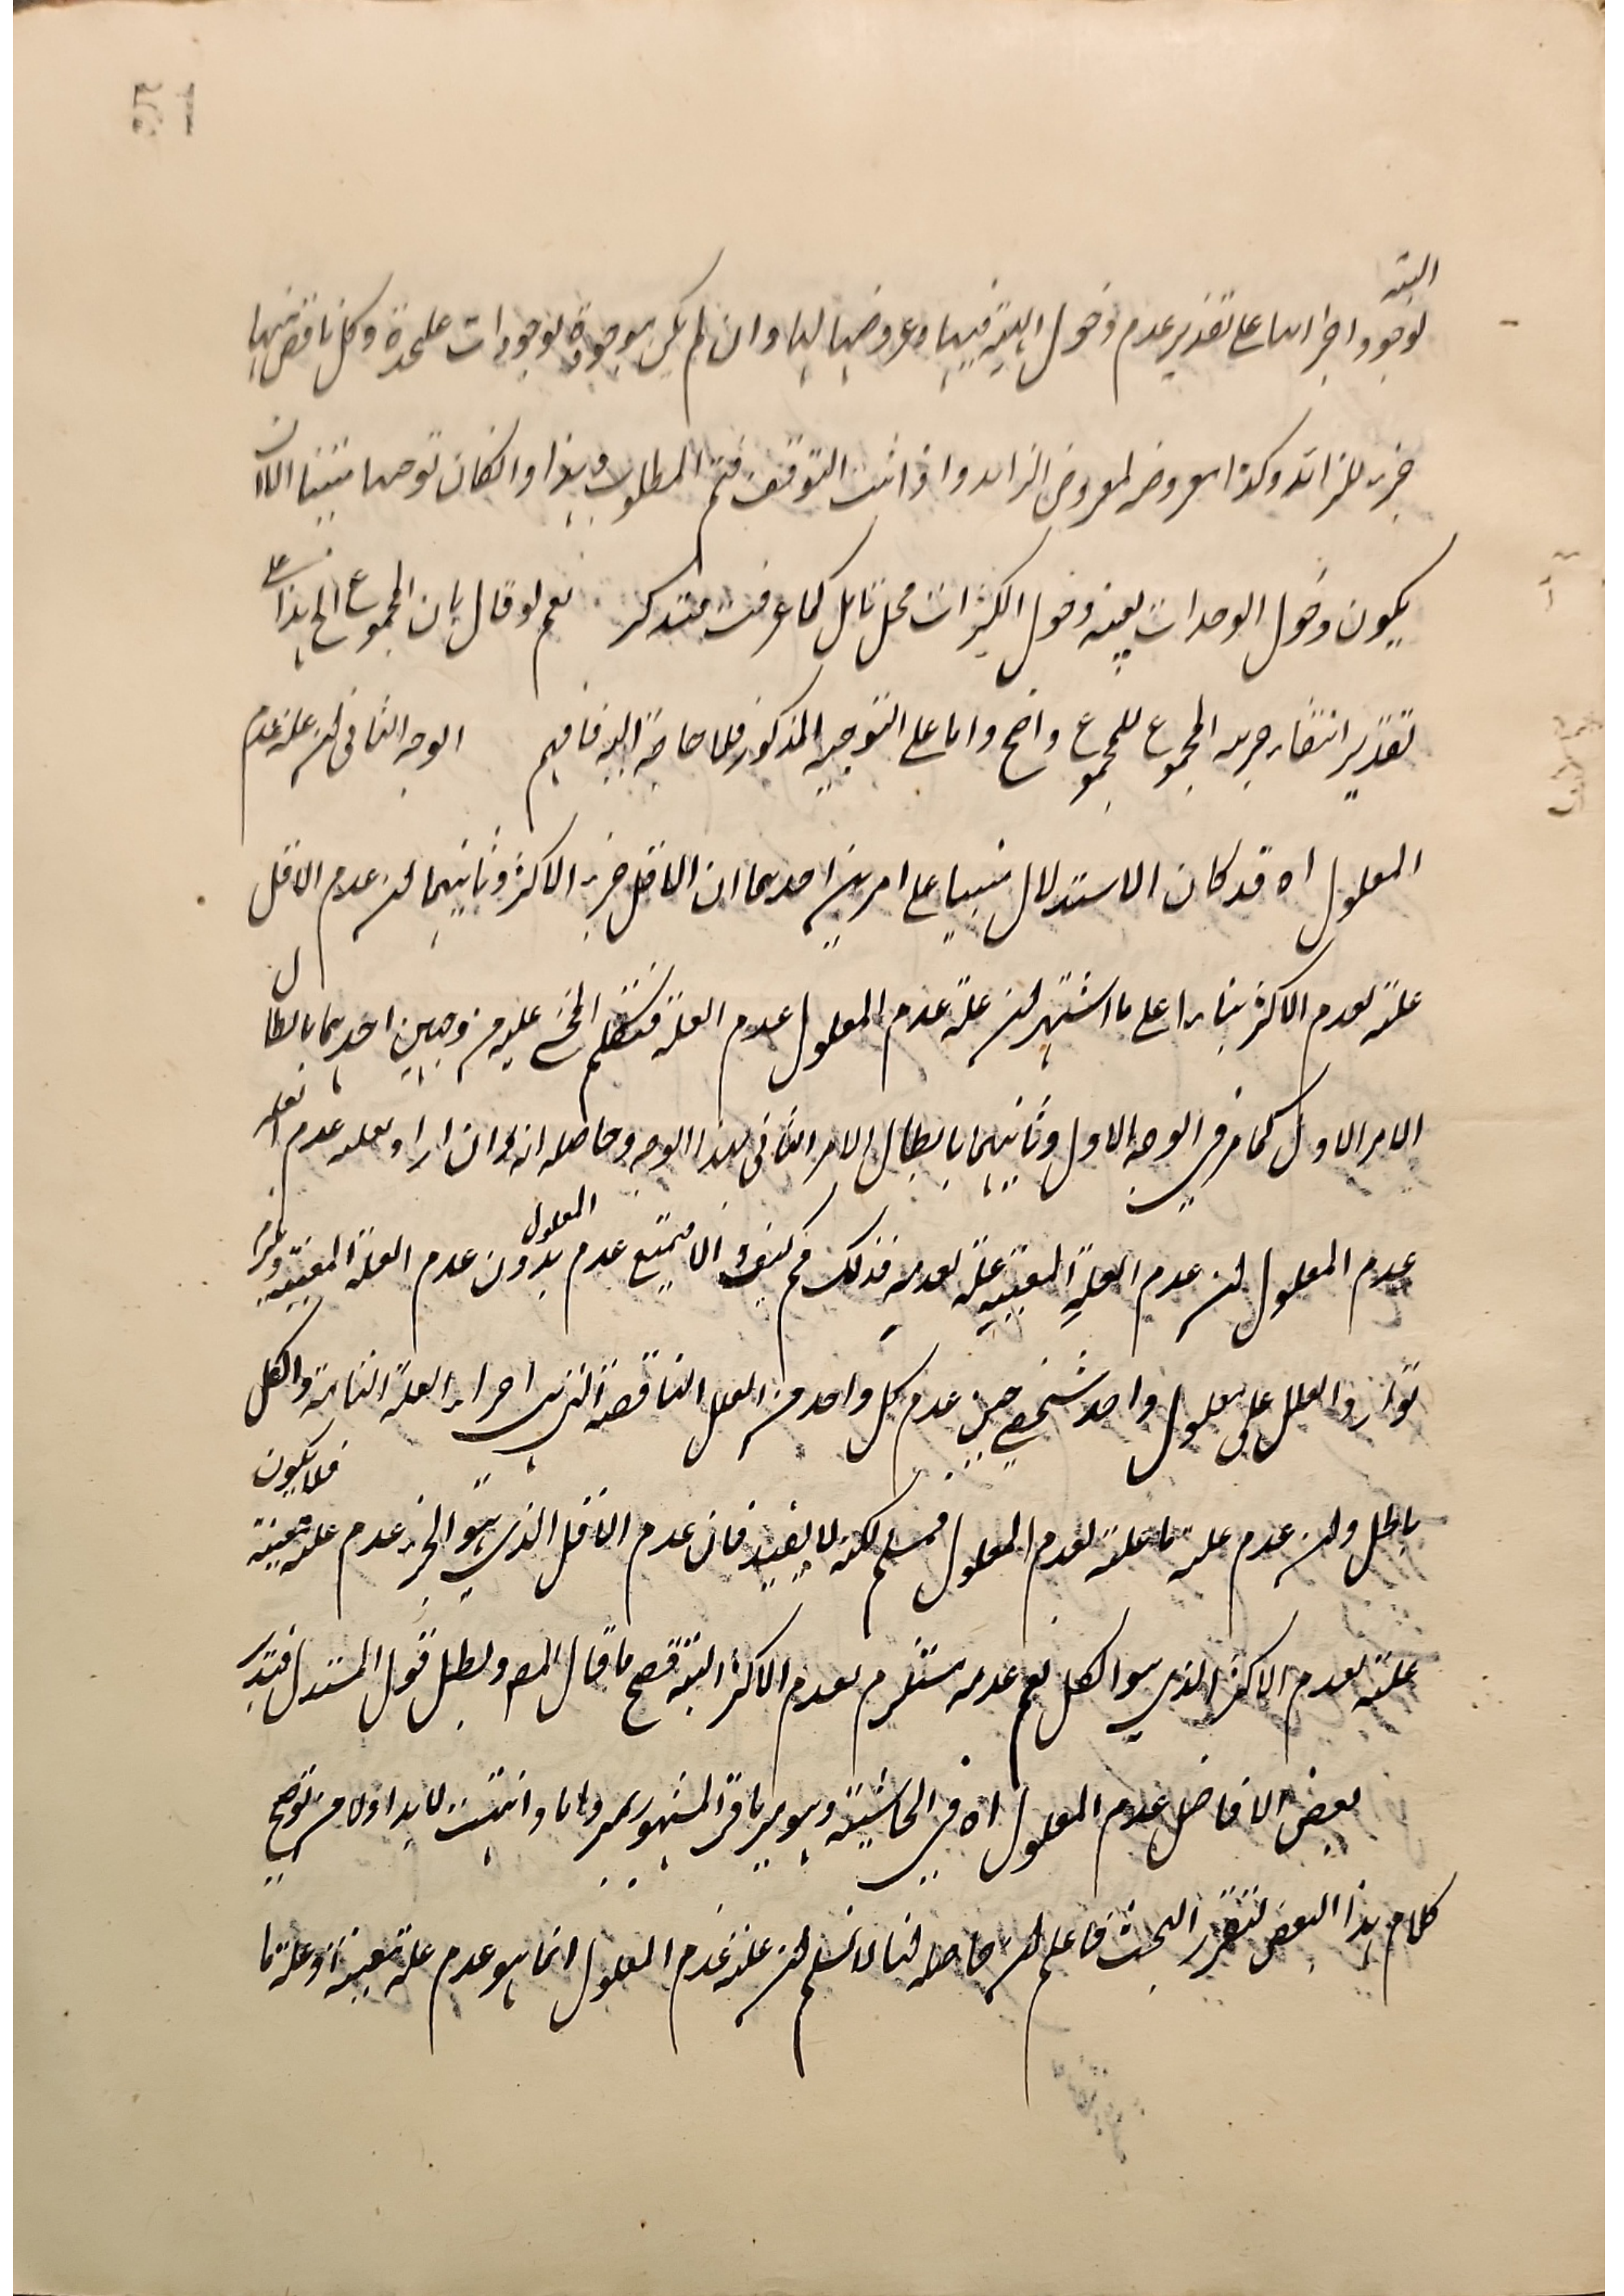 البتة
لوجود اجزائها على تقدير عدم دخول الهيئة فيها وعروضها لها وان لم يكن موجودة بوجودات علحدة وكل ناقص منها
جزء للزائد وكذا معروضه لمعروض الزائد واذا ثبت التوقف فتم المطلوب هذا وان كان توهما متينا الا ان
يكون دخول الوحدات بعينه دخول الكثرات محل تامل كما عرفت فتذكر نعم لو قال بان المجموع الخ هذا على
تقدير انتفاء جزئية المجموع للمجموع واضح واما على التوجيه المذكور فلا حاجة اليه فافهم الوجه الثانى ان علة عدم
المعلول اه قد كان الاستدلال مبنيا على امرين احدهما ان الاقل جزء الاكثر وثانيهما ان عدم الاقل
علة لعدم الاكثر بناء على ما اشتهر ان علة عدم المعلول عدم العلة فتكلم المحشى عليه من وجهين احدهما بابطال
الامر الاول كما مر فى الوجه الاول وثانيهما بابطال الامر الثانى بهذا الوجه وحاصله انه ان اراد بعلة عدم العلة
عدم المعلول ان عدم العلة المعينة علة لعدمه فذلك مم كيف والا فيمتنع عدم المعلول بدون عدم العلة المعينة وعند
توارد العلل على معلول واحد شخصى حين عدم كل واحد من العلل الناقصة التى هى اجزاء العلة التامة والكل
باطل وان عدم علة ما علة لعدم المعلول فمسلم لكنه لا يفيد فان عدم الاقل الذى هو الجزء عدم علة معينة فلا يكون
علة لعدم الاكثر الذى هو الكل نعم عدمه مستلزم لعدم الاكثر البتة فصح ما قال المصـ وبطل قول المستدل فتدبر
بعض الافاضل عدم المعلول اه فى الحاشية وهو مير باقر المشهور بمير داماد وانت لا بد اولا من توضيح
كلام هذا البعض لتقرر البحث فاعلم ان حاصله انا لا نسلم ان علة عدم المعلول انما هو عدم علة معينة او علة ما